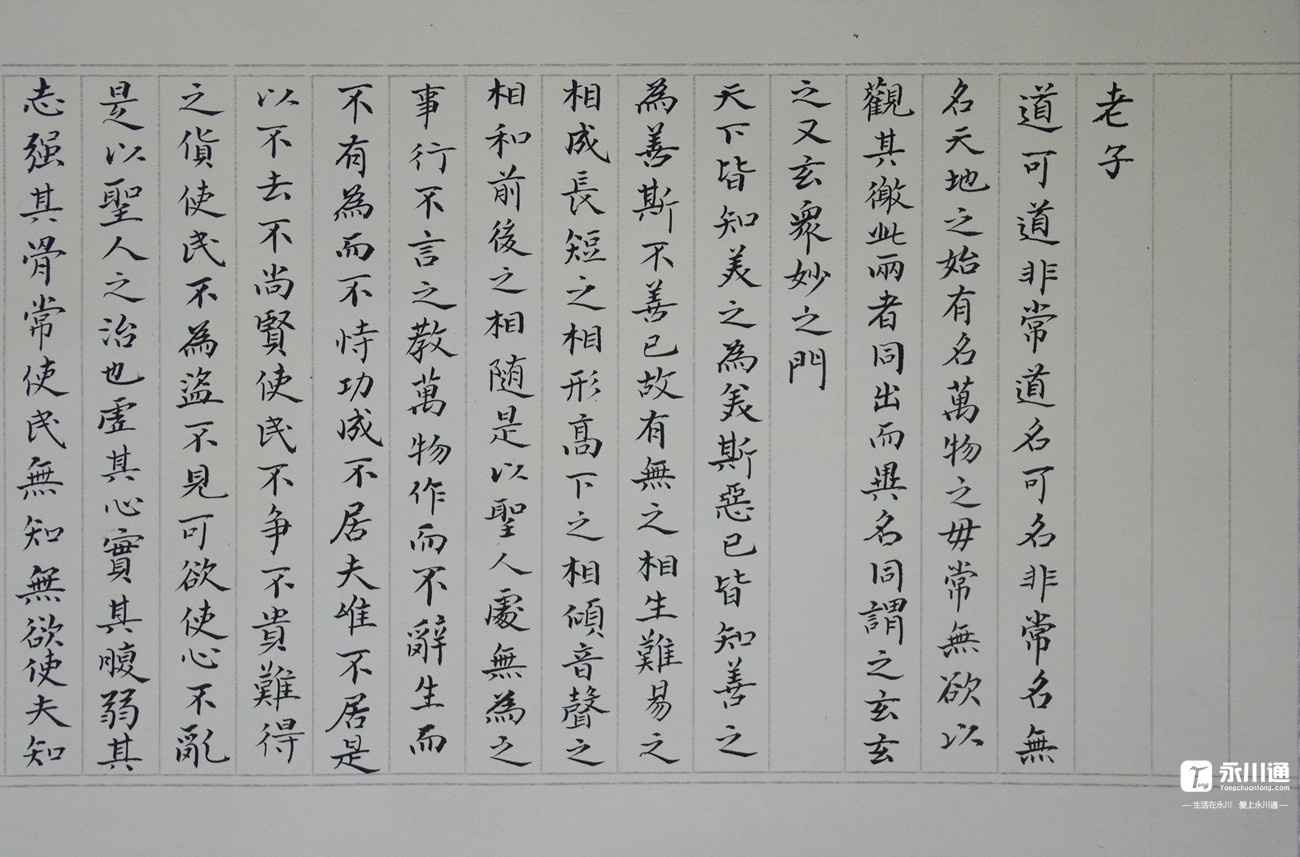 老子
道可道非常道名可名非常名無
名天地之始有名萬物之毋常無欲以
觀其徼此兩者同出而異名同謂之玄玄
之又玄衆妙之門
天下皆知美之為美斯惡已皆知善之
為善斯不善已故有無之相生難易之
相成長短之相形高下之相傾音聲之
相和前後之相随是以聖人處無為之
事行不言之教萬物作而不辭生而
不有為而不恃功成不居夫唯不居是
以不去不尚賢使民不争不貴難得
之貨使民不為盗不見可欲使心不亂
是以聖人之治也虚其心實其腹弱其
志强其骨常使民無知無欲使夫知
永川通
Yongchuantong.com
Tong
— 生活在永川 爱上永川通 —